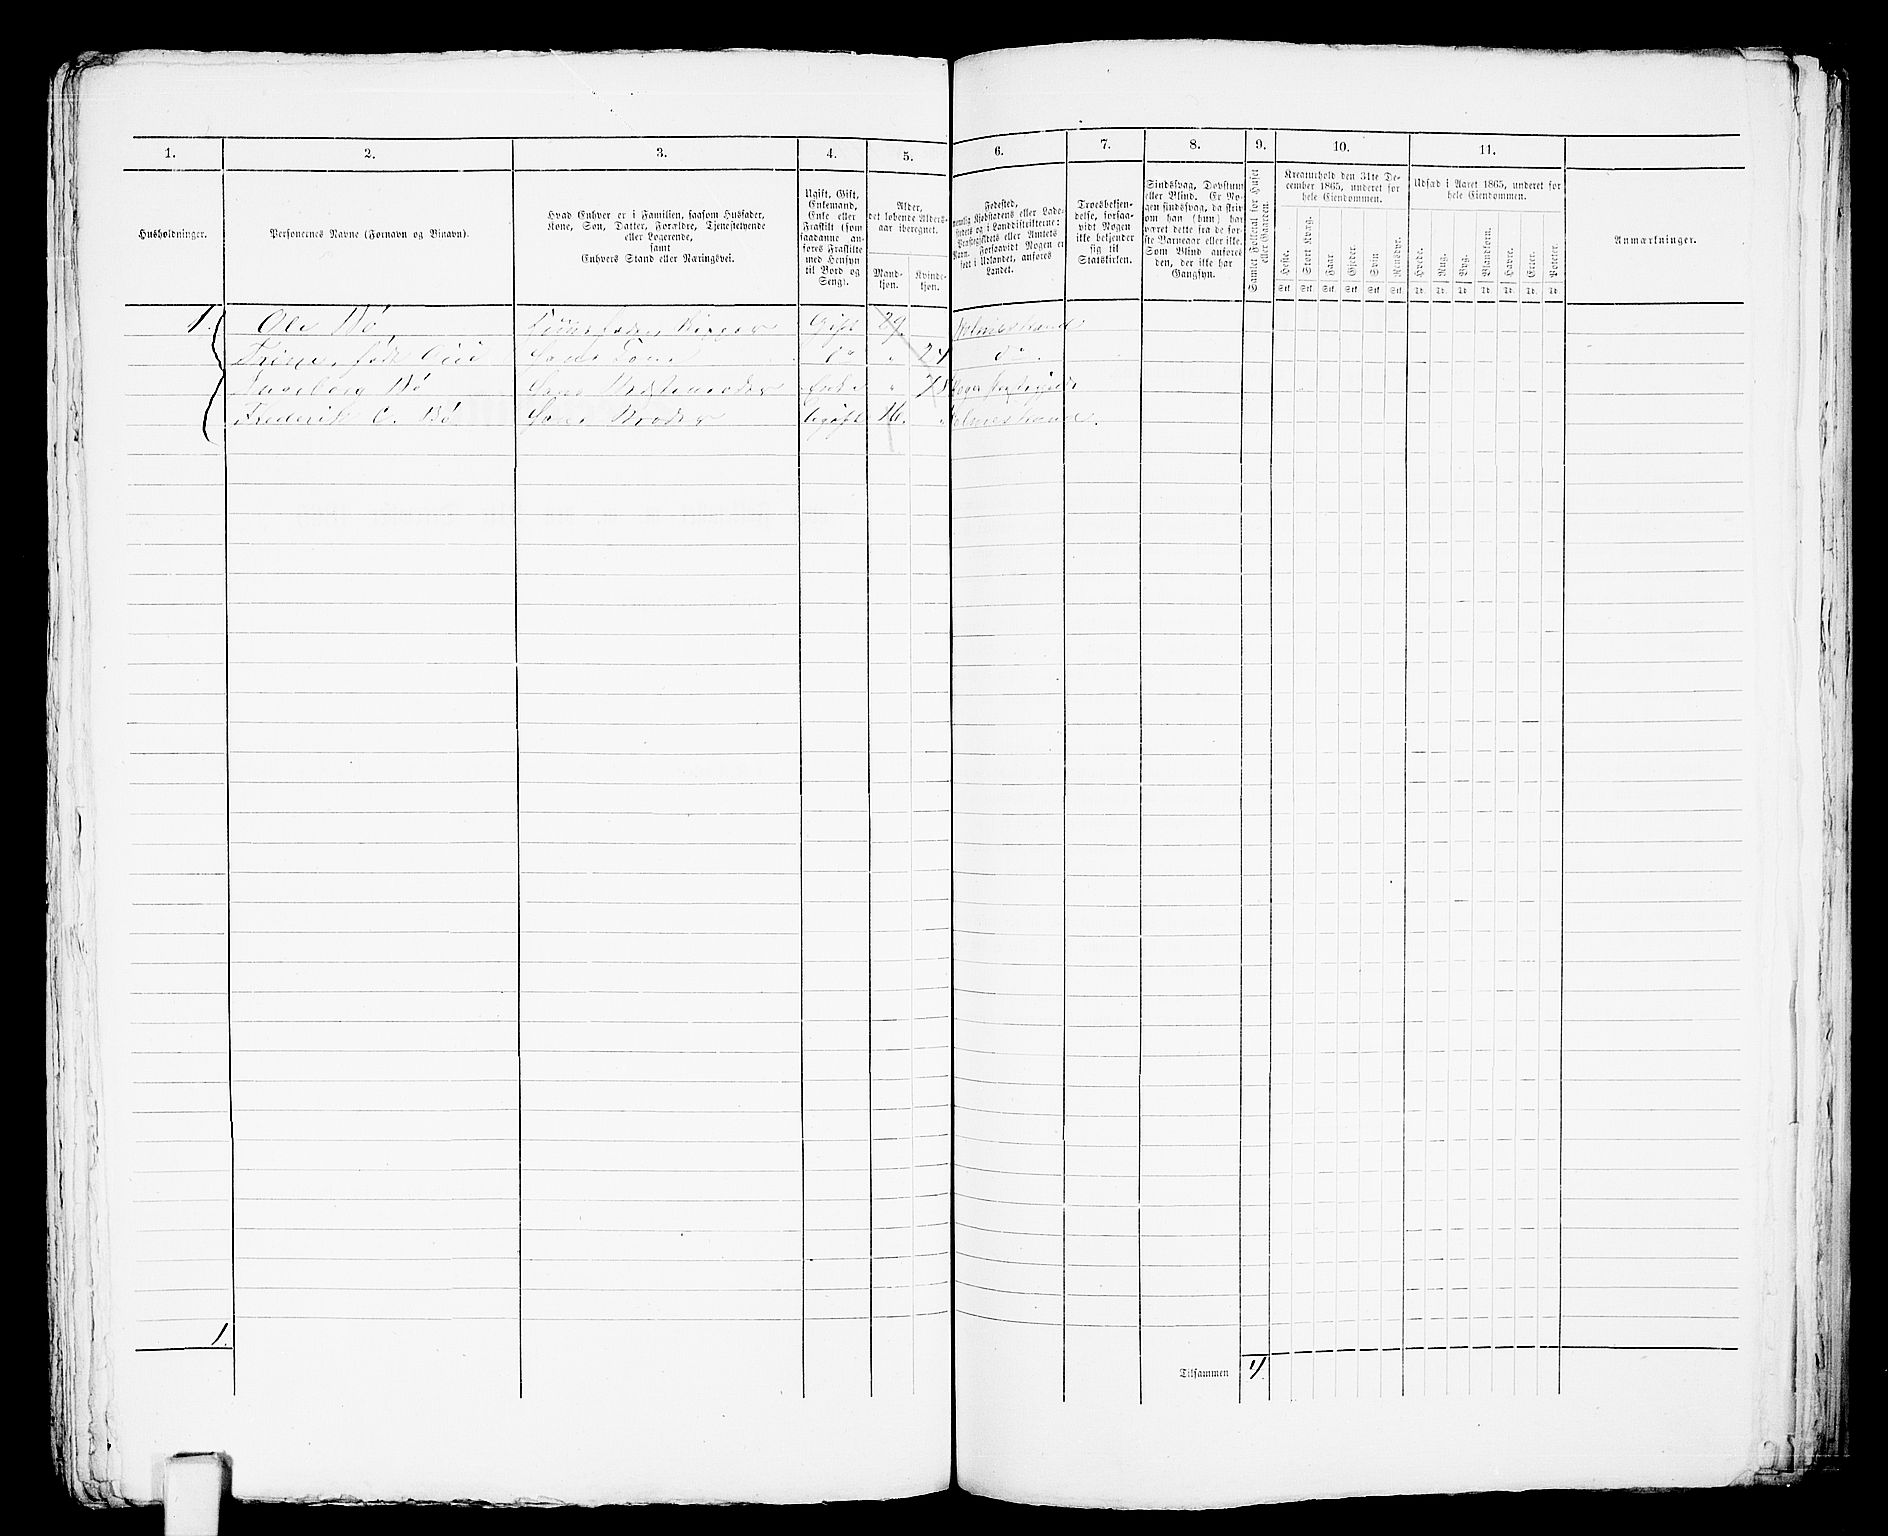 1. 2. 3. 4. 5. 6. 7. 8. 9. 10. 11.
Husholdninger.
Personernes Navne (Fornavn og Binavn).
Hvad Enhver er i Familien, saasom Husfader,
Kone, Søn, Datter, Forældre, Tjenestetyende
eller Logerende,
samt
Enhvers Stand eller Næringsvei.
Ugift, Gift,
Enkemand,
Enke eller
Fraskilt (som
saadanne an-
føres Fraskilte
med Hensyn
til Bord og
Seng).
Alder,
det løbende Alders-
aar iberegnet.
Mand-
kjøn.
Kvinde-
kjøn.
Fødested,
nemlig Kjøbstadens eller Lade-
stedets og i Landdistrikterne:
Præstegjeldets eller Amtets
Navn. Forsaavidt Nogen er
født i Udlandet, anføres
Landet.
Troesbekjen-
delse, forsaa-
vidt Nogen
ikke bekjender
sig til
Statskirken.
Sindssvag, Døvstum
eller Blind. Er No-
gen sindssvag, da skriv
om han (hun) har
været dette fra de før-
ste Barneaar eller ikke.
Som Blind anføres
den, der ikke har
Gangsyn.
Samlet Folketal for Huset
eller Gaarden.
Kreaturhold den 31te De-
cember 1865, underet for
hele Eiendommen.
Heste. Stort Kvæg. Faar. Gjeder. Svin Rensdyr.
Stk. Stk. Stk. Stk. Stk. Stk.
Udsæd i Aaret 1865, underet for
hele Eiendommen.
Hvede. Rug. Byg. Blandkorn. Havre. Erter. Poteter.
Td. Td. Td. Td. Td. Td. Td.
Anmærkninger.
1. Ole Bö Huusfader, Rigger Gift 29 Holmestrand
Trine, född Hans Kone do " 24 do.
Ingeborg Bö Hans Enke " 78
Frederik C. Bö Hans Broder Ugift 16. " Holmestrand.
1.
Tilsammen 4